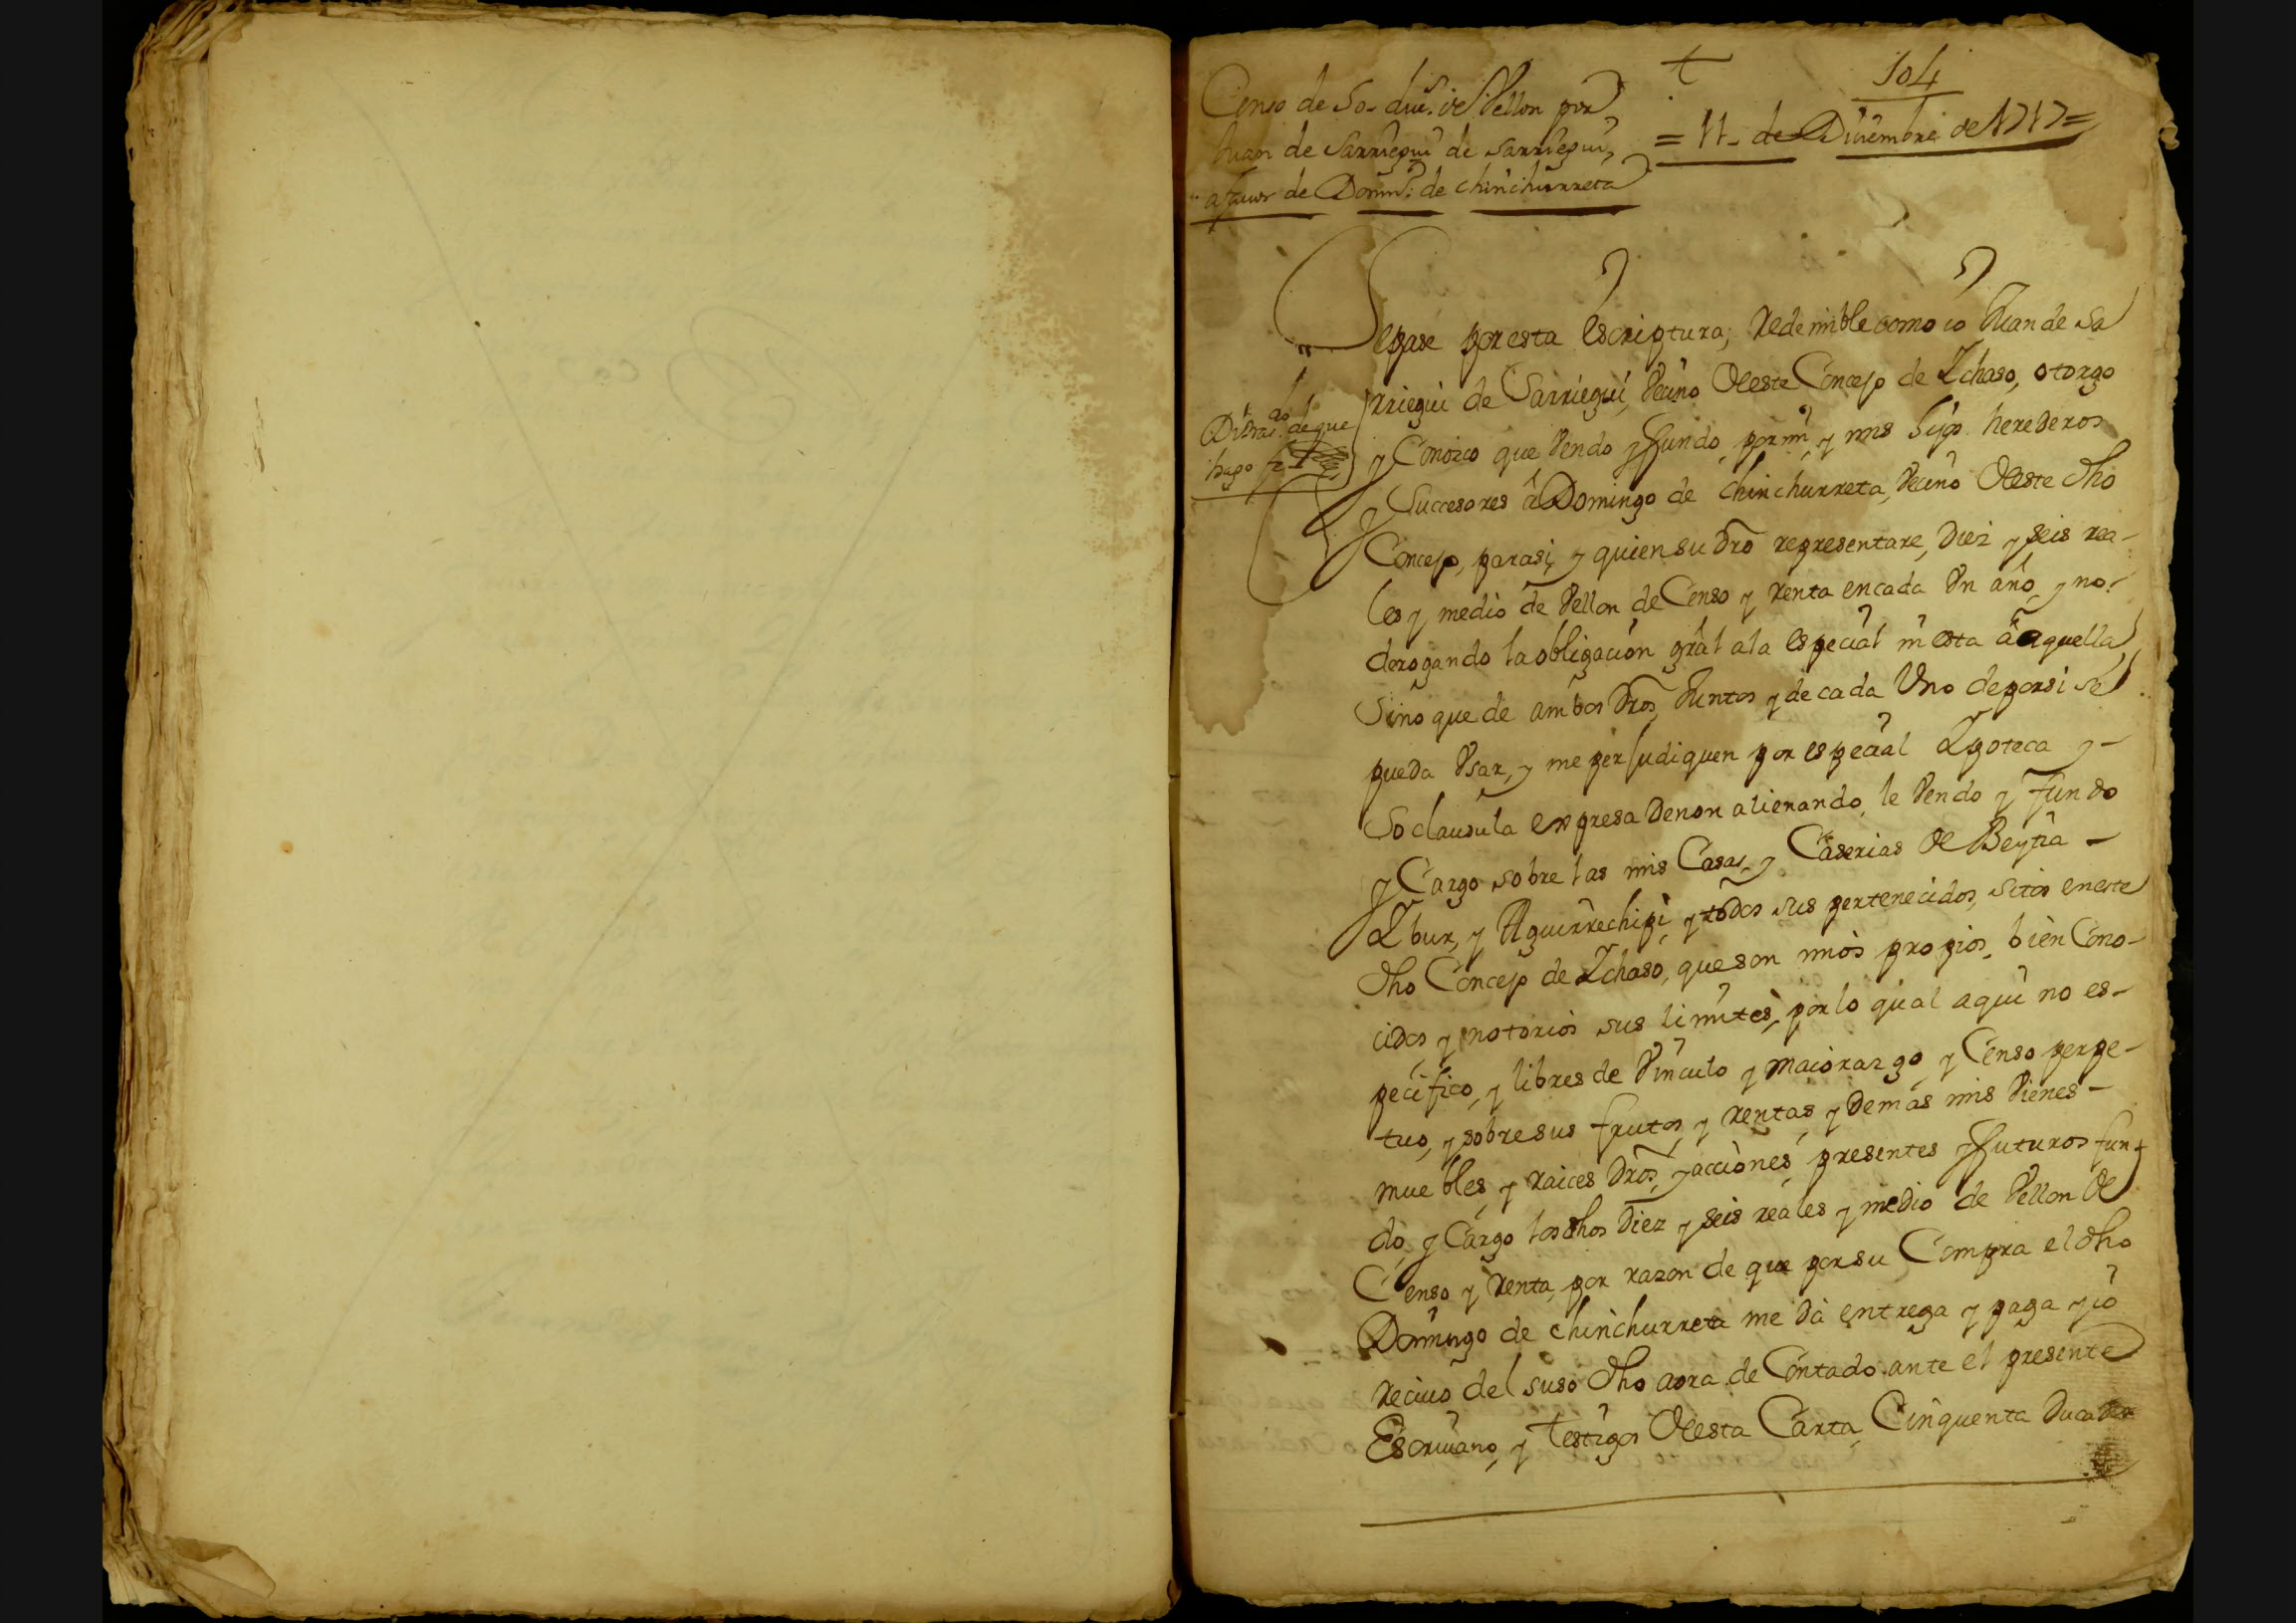 †
104
Censo de 50. duc.s de Vellon por
Juan de Sarriegui de Sarriegui,
afauor de Domin.o de chinchurreta
= 11. de Diciembre de 1717 =
Sepase por esta escriptura, redemible como io Juan de Sa
rriegui de Sarriegui, Vecino de este Concejo de Ichaso, otorgo
y Conozco que Vendo y fundo, por mi, y mis hijos herederos
y Succesores â Domingo de chinchurreta, Vecino de este dho
Concejo, para si, y quien su dro representare, diez y seis rea-
les y medio de Vellon de Censo y renta en cada Vn año, y no
derogando la obligacion gral a la especial ni esta â aquella,
Sino que de ambos dros Juntos y de cada Vno de por si se
pueda Vsar, y me perjudiquen por especial Ypoteca y-
So clausula expresa de non alienando, le Vendo y fundo
y Cargo sobre las mis Casas, y Caserias de Beyna -
Ybur, y Aguirrechipi, y todos sus pertenecidos, sitos en este
dho Concejo de Ichaso, que son mios propios, bien Cono-
cidos y notorios sus limites, por lo qual aqui no es-
pecifico, y libres de Vinculo y maiorazgo, y Censo perpe-
tuo, y sobre sus frutos, y rentas, y demas mis Vienes -
muebles, y raices dros, y acciones, presentes y futuros fun-
do, y Cargo los dhos diez y seis reales y medio de Vellon de
Censo y renta, por razon de que por su Compra el dho
Domingo de chinchurreta me dà entrega y paga y io
reciuo del suso dho aora de Contado ante el presente
Escriuano, y testigos de esta Carta, Cinquenta ducados
de que
hago